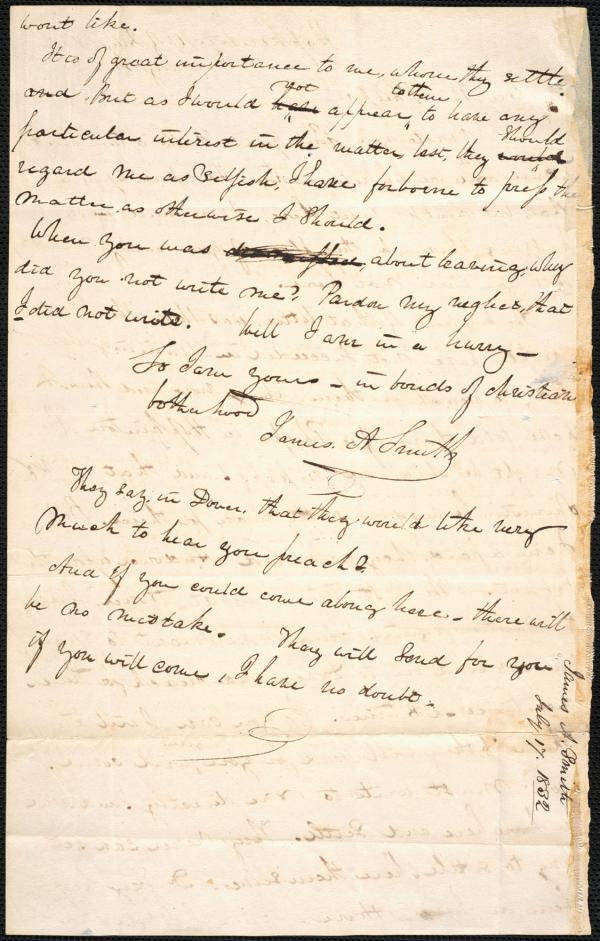 wont like.
It is of great importance to me, whom they settle.
and But as I would have not appear to them, to have any
particular interest in the matter, lest, they would should
regard me as selfish, I have forborne to press the
matter, as otherwise I should.
When you was about leaving, why
did you not write me? Pardon my neglect, that
I did not write. Well I am in a hurry—
So I am yours— in bonds of christian
brotherhood
James. A Smith
They say, in Dover, that they would like very
much to hear you preach?
And if you could come along here— there will
be no mistake. They will send for you
if you will come, I have no doubt.
James A. Smith
July 17. 1832